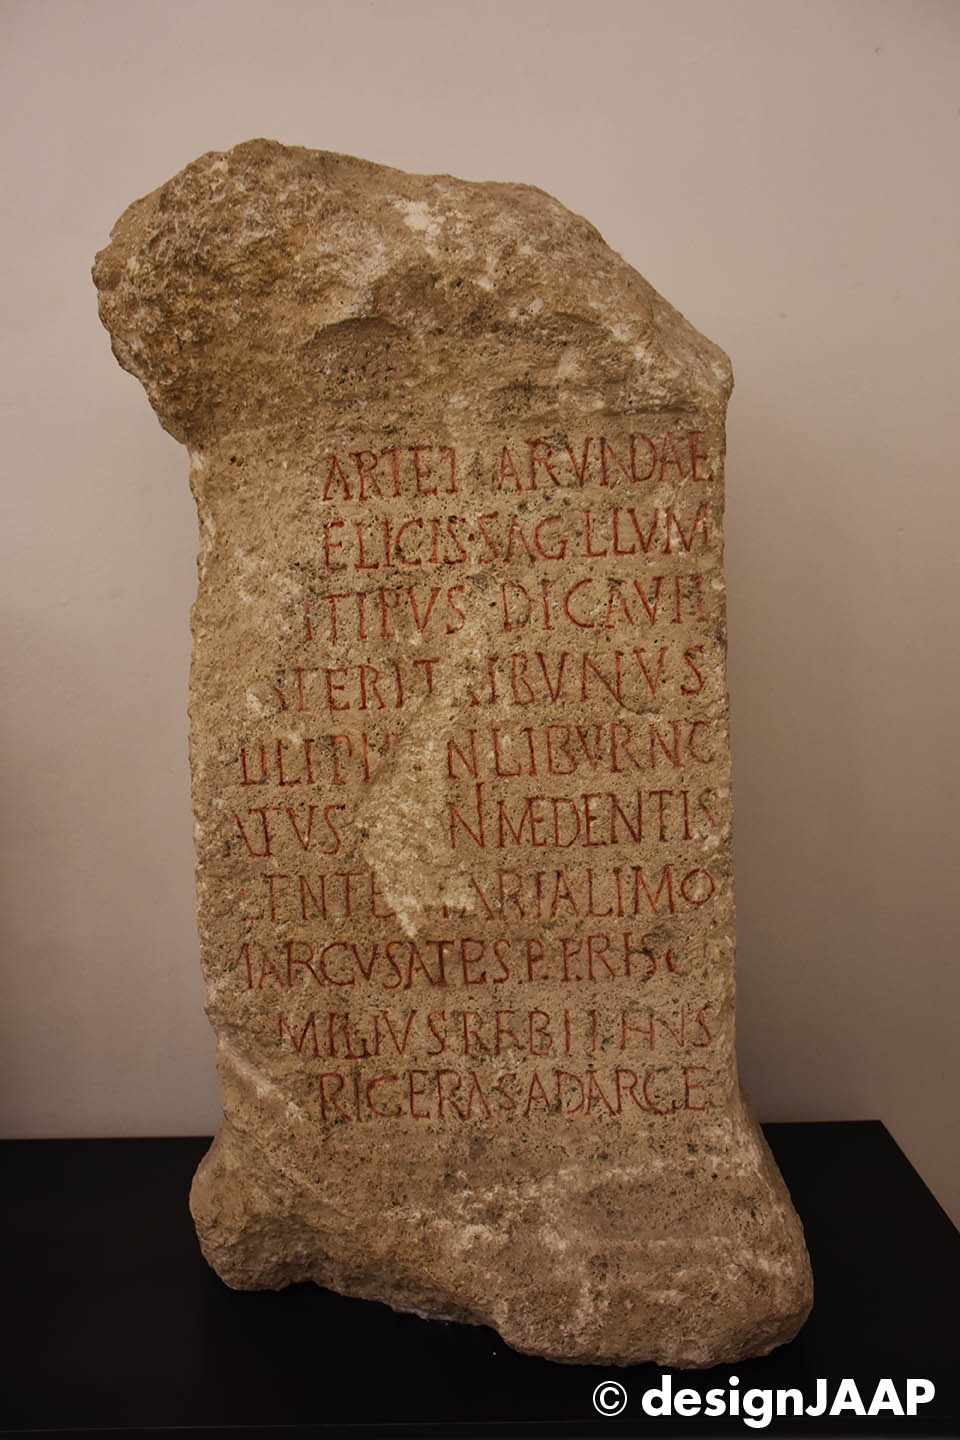 ARTEI ARVNDAE
ELICIS SAG LLVM
ITIPVS DICAVIT
ERIT IBVNVS
N LIBVRNO
ATVS N MEDENTIS
ARTALIMO
MARCVS ATES P PRISC
MILIVS
RIGERAS AD ARCE
© designJAAP